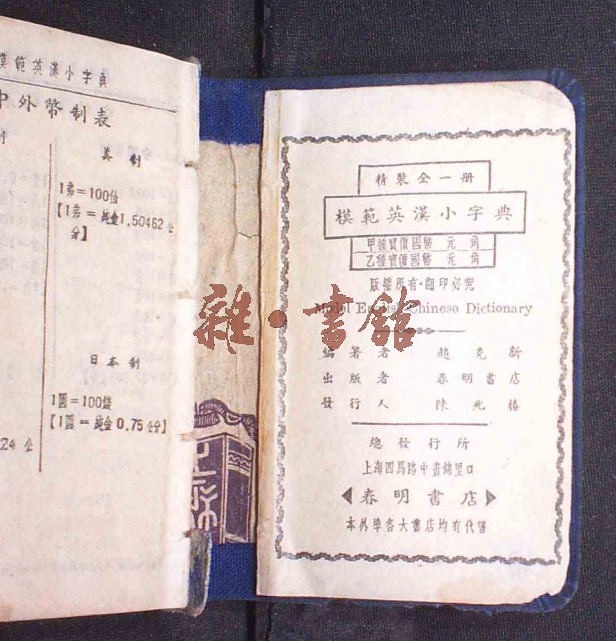 模範英漢小字典
中外幣制表
美制
1弗=100仙
【1弗=純金1.50462公
分】
日本制
1圓=100錢
【1圓=純金0.75公分】
24公
精裝全一册
模範英漢小字典
甲種實價國幣 元 角
乙種實價國幣 元 角
版權所有·翻印必究
Model English-Chinese Dictionary
雜·書館
編著者 趙克新
出版者 春明書店
發行人 陳兆椿
總發行所
上海四馬路中畫錦里口
春明書店
本外埠各大書店均有代售